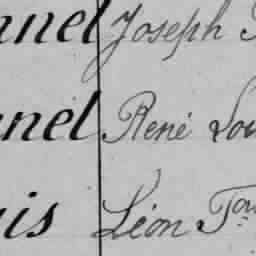 nnel Joseph
nnel René Lou
uis Léon